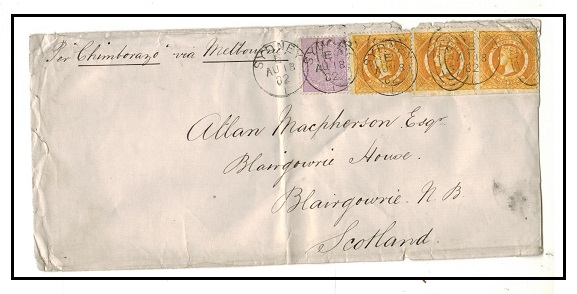 Per "Chimborazo" via Melbourne
SYDNEY
E
AU 18
82
E
AU 18
82
Allan Macpherson Esqr
Blairgowrie House.
Blairgowrie. N.B.
Scotland.